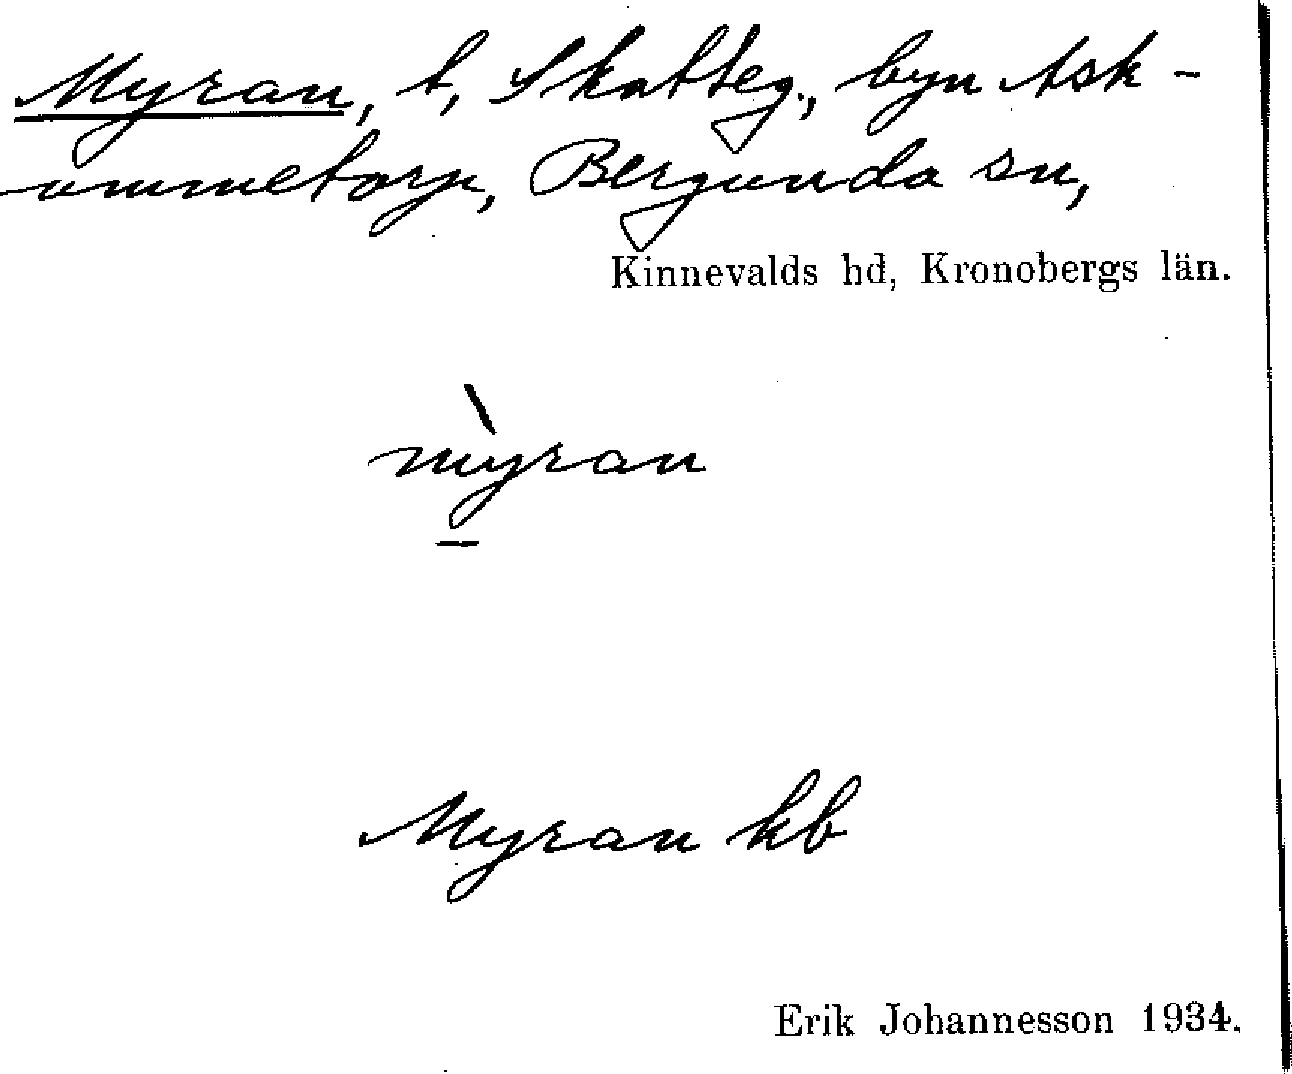 Myran, t, Skatteg., byn Ask-
ommetorp, Bergunda sn,
Kinnevalds hd, Kronobergs län.
mỳran
Myran kb
Erik Johannesson 1934.